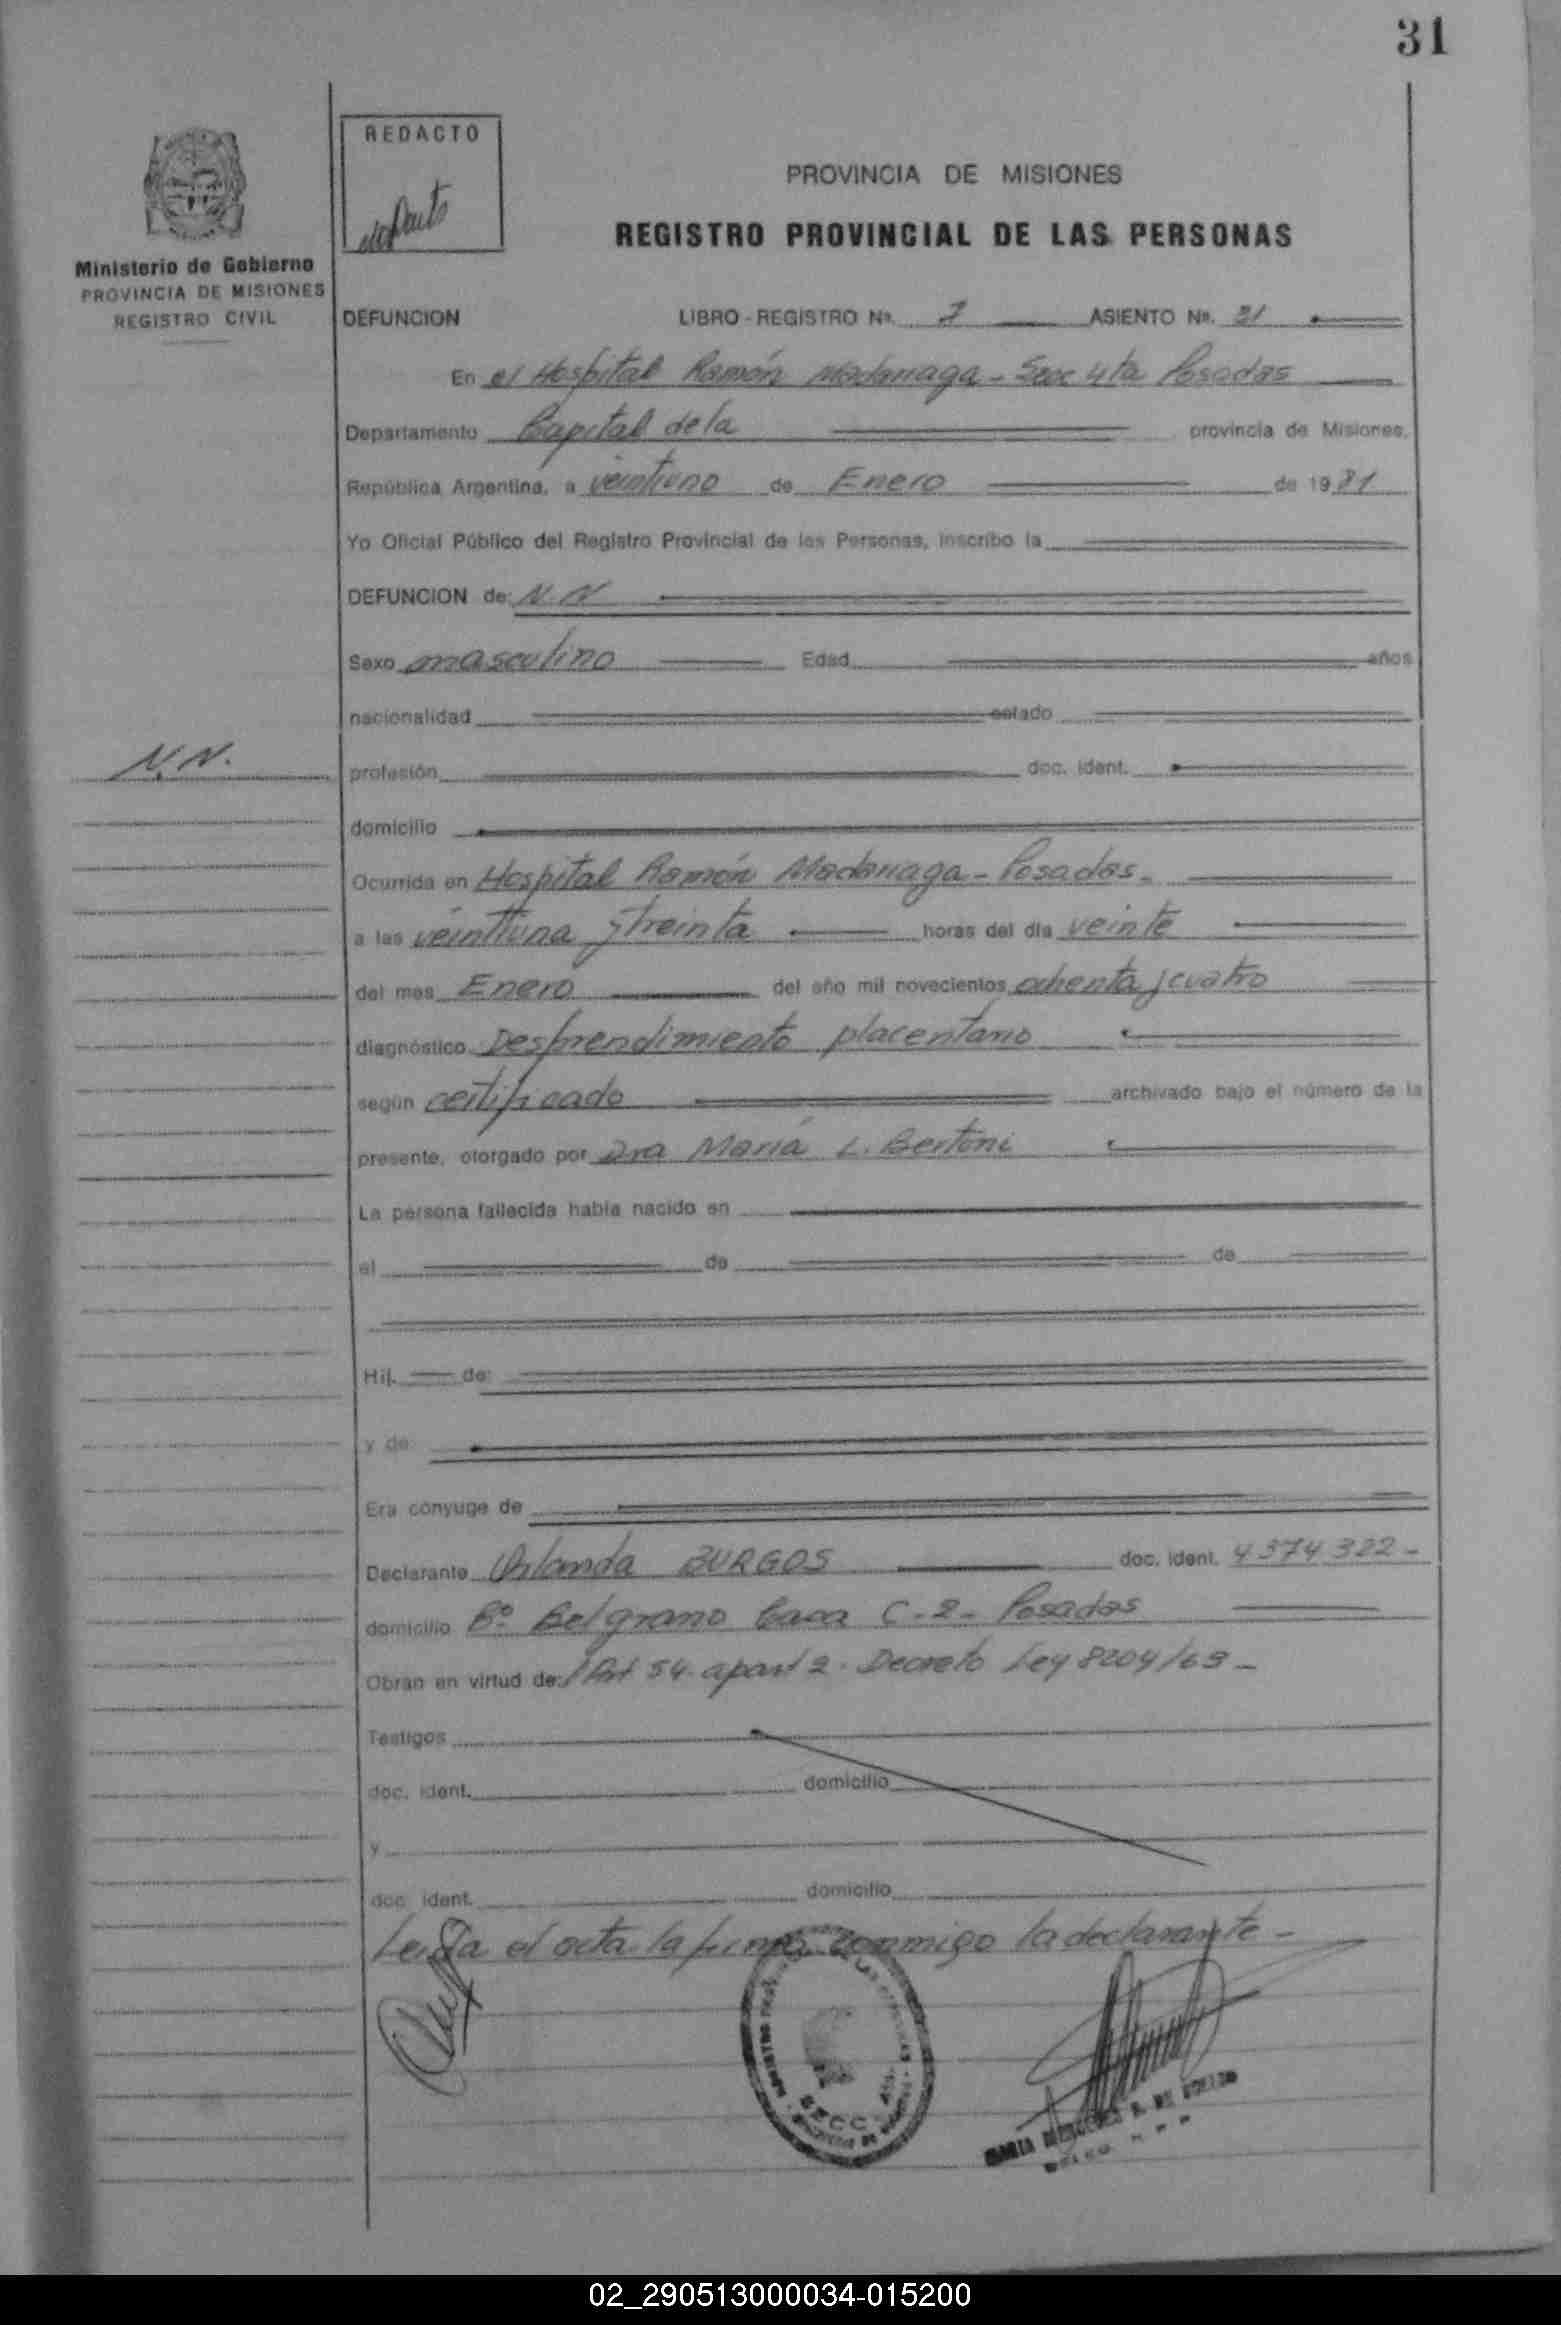 31
REDACTO
PROVINCIA DE MISIONES
REGISTRO PROVINCIAL DE LAS PERSONAS
Ministerio de Gobierno
PROVINCIA DE MISIONES
REGISTRO CIVIL
DEFUNCION LIBRO - REGISTRO Nº. ASIENTO Nº. 31
En el Hospital Ramón Madariaga - Secc 4ta Posadas
Departamento Capital de la provincia de Misiones,
República Argentina, a veintiuno de Enero de 19
Yo Oficial Público del Registro Provincial de las Personas, inscribo la
DEFUNCION de: N.N
Sexo masculino Edad años
nacionalidad estado
N.N.
profesión doc. ident.
domicilio
Ocurrida en Hospital Ramón Madariaga - Posadas -
a las veintiuna y treinta horas del día veinte
del mes Enero del año mil novecientos ochenta y cuatro
diagnóstico Desprendimiento placentario
según certificado archivado bajo el número de la
presente, otorgado por Dra María L. Bertoni
La persona fallecida había nacido en
el de de
Hij. de:
y de
Era cónyuge de
Declarante BURGOS doc. ident. 4374322 -
domicilio Bº Belgrano Casa C-2- Posadas
Obran en virtud de: Art 54. apart 2. Decreto Ley 8204/63 -
Testigos
doc. ident. domicilio
y
doc. ident. domicilio
Leída el acta la firma conmigo la declarante -
SECC.
MARIA MERCEDES
02_290513000034-015200